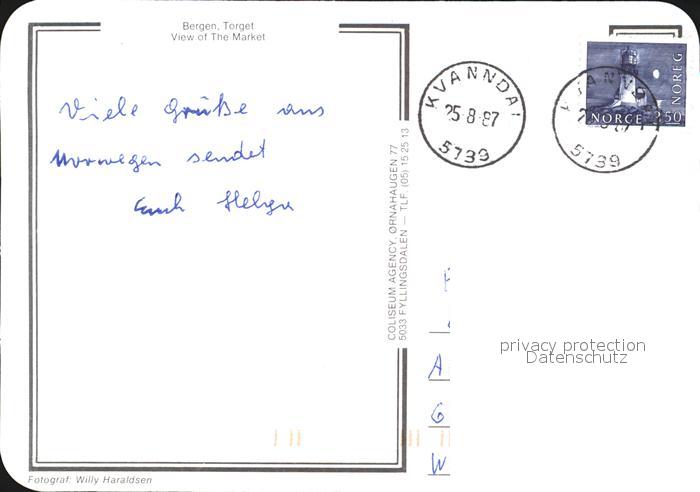 Bergen, Torget
View of The Market
Viele Grüße aus
Norwegen sendet
Euch Helga
COLISEUM AGENCY, ØRNAHAUGEN 77
5033 FYLLINGSDALEN — TLF. (05) 15 25 13
KVANNDAL
25-8-87
5739
NORGE 350 NOREG
5739
A
G
W
privacy protection
Datenschutz
Fotograf: Willy Haraldsen